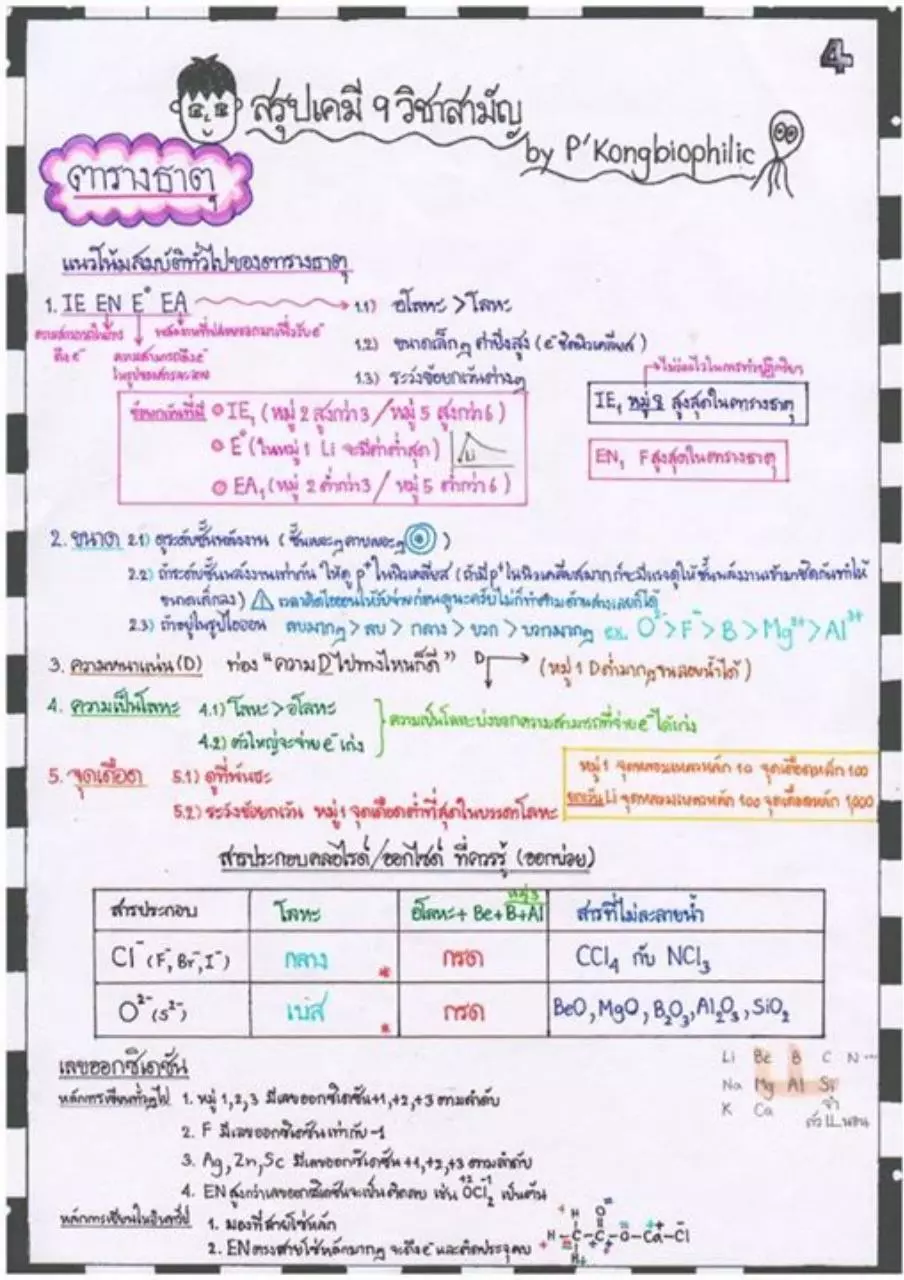 4
สรุปเคมี 9 วิชาสามัญ
by P'Kongbiophilic
ตารางธาตุ
แนวโน้มสมบัติทั่วไปของตารางธาตุ
1. IE EN E° EA
1.1) อโลหะ > โลหะ
1.2) ขนาดเล็กๆ ค่ายิ่งสูง (e⁻ ชิดนิวเคลียส)
1.3) ระวังข้อยกเว้นต่างๆ
ความสามารถในการดึง e⁻
พลังงานที่ปล่อยออกมาเมื่อรับ e⁻
ความสามารถดึง e⁻
ในรูปของสารละลาย
ข้อยกเว้นที่มี
IE₁ (หมู่ 2 สูงกว่า 3 / หมู่ 5 สูงกว่า 6)
E° (ในหมู่ 1 Li จะมีค่าต่ำสุด)
Li
EA₁ (หมู่ 2 ต่ำกว่า 3 / หมู่ 5 ต่ำกว่า 6)
ไม่ว่องไวในการทำปฏิกิริยา
IE₁ หมู่ 8 สูงสุดในตารางธาตุ
EN₁ F สูงสุดในตารางธาตุ
2. ขนาด 2.1) ดูระดับชั้นพลังงาน (ชั้นเยอะๆ คาบเยอะๆ)
2.2) ถ้าระดับชั้นพลังงานเท่ากัน ให้ดู p⁺ ในนิวเคลียส (ถ้ามี p⁺ ในนิวเคลียสมากก็จะมีแรงดูให้ชั้นพลังงานเข้ามาชิดกันทำให้
ขนาดเล็กลง) เวลาคิดไอออนให้รับจ่ายก่อนดูนะครับ
2.3) ถ้าอยู่ในรูปไอออน ลบมากๆ > ลบ > กลาง > บวก > บวกมากๆ ex. O²⁻ > F⁻ > B > Mg²⁺ > Al³⁺
3. ความหนาแน่น (D) ท่อง "ความ D ไปทางไหนก็ดี" D (หมู่ 1 D ต่ำมากๆ จนลอยน้ำได้)
4. ความเป็นโลหะ 4.1) โลหะ > อโลหะ
4.2) ตัวใหญ่จะจ่าย e⁻ เก่ง
ความเป็นโลหะบ่งบอกความสามารถที่จ่าย e⁻ ได้เก่ง
5. จุดเดือด 5.1) ดูที่พันธะ
5.2) ระวังข้อยกเว้น หมู่ 1 จุดเดือดต่ำที่สุดในบรรดาโลหะ
หมู่ 1 จุดหลอมเหลวหลัก 10 จุดเดือดหลัก 100
ยกเว้น Li จุดหลอมเหลวหลัก 100 จุดเดือดหลัก 1,000
สารประกอบคลอไรด์/ออกไซด์ ที่ควรรู้ (ออกบ่อย)
หมู่ 3
สารประกอบ โลหะ อโลหะ + Be + B + Al สารที่ไม่ละลายน้ำ
Cl⁻ (F⁻, Br⁻, I⁻) กลาง * กรด CCl₄ กับ NCl₃
O²⁻ (S²⁻) เบส * กรด BeO, MgO, B₂O₃, Al₂O₃, SiO₂
Li Be B C N ...
Na Mg Al Si
K Ca
จำ
ตัว LL นอน
เลขออกซิเดชัน
หลักการเขียนทั่วไป 1. หมู่ 1, 2, 3 มีเลขออกซิเดชัน +1, +2, +3 ตามลำดับ
2. F มีเลขออกซิเดชันเท่ากับ -1
3. Ag, Zn, Sc มีเลขออกซิเดชัน +1, +2, +3 ตามลำดับ
4. EN สูงกว่าเลขออกซิเดชันจะเป็นติดลบ เช่น OCl₂ เป็นต้น
+2 -1
1. มองที่สายโซ่หลัก
2. EN ตรงสายโซ่หลักมากๆ จะดึง e⁻ และติดประจุลบ
H-C-C-O-Ca-Cl
H
O
H